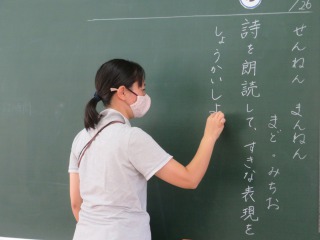 /26
せんねん　まんねん
まど・みちお
詩を朗読して、すきな表現を
しょうかいしよ